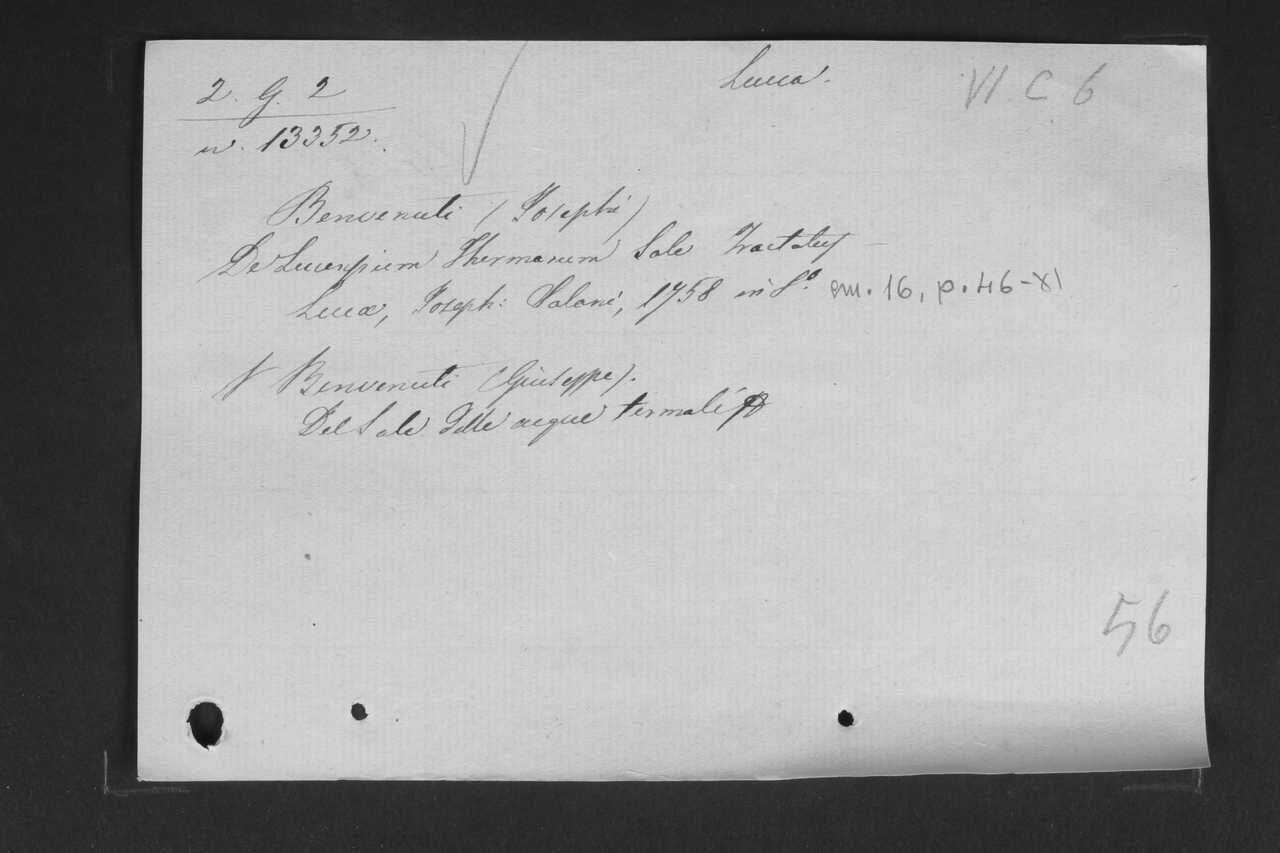 2. G. 2
n. 13352.
Lucca.
VI. C 6
Benvenuti (Josephi)
De Lucensium Thermarum Sale Tractatus
Lucæ, Joseph: Salani, 1758 in 8.º cm. 16, p. 46-XI
Benvenuti (Giuseppe).
Del Sale delle acque termali
56